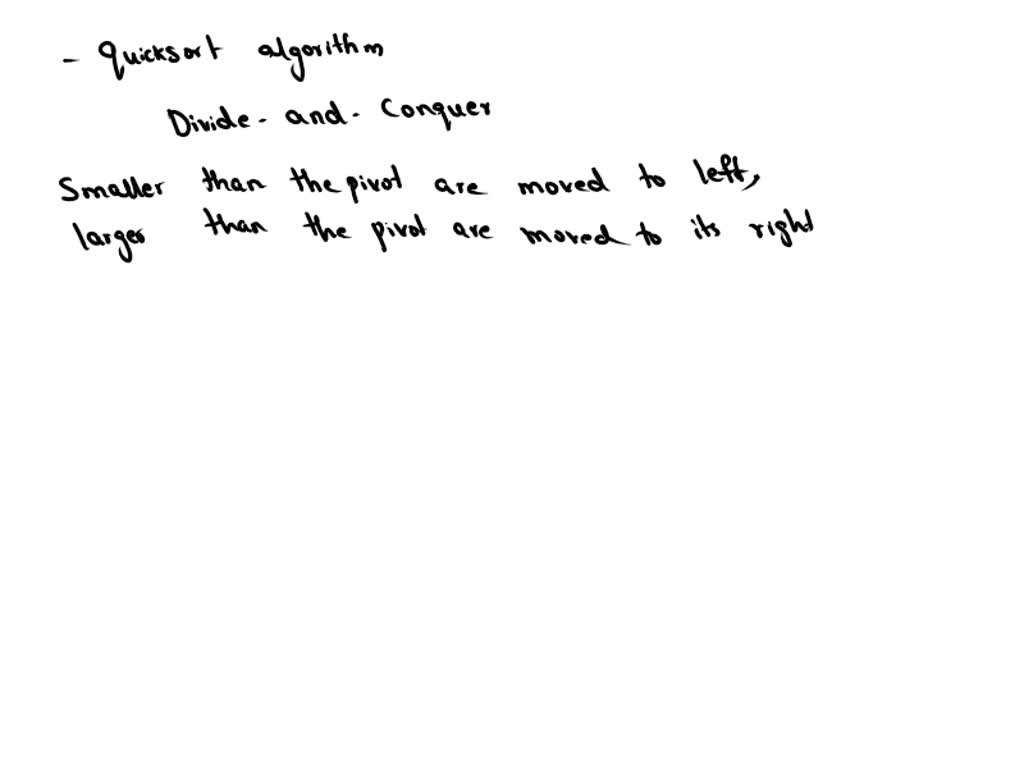 - Quicksort algorithm
Divide - and - Conquer
Smaller than the pivot are moved to left,
larger than the pivot are moved to its right